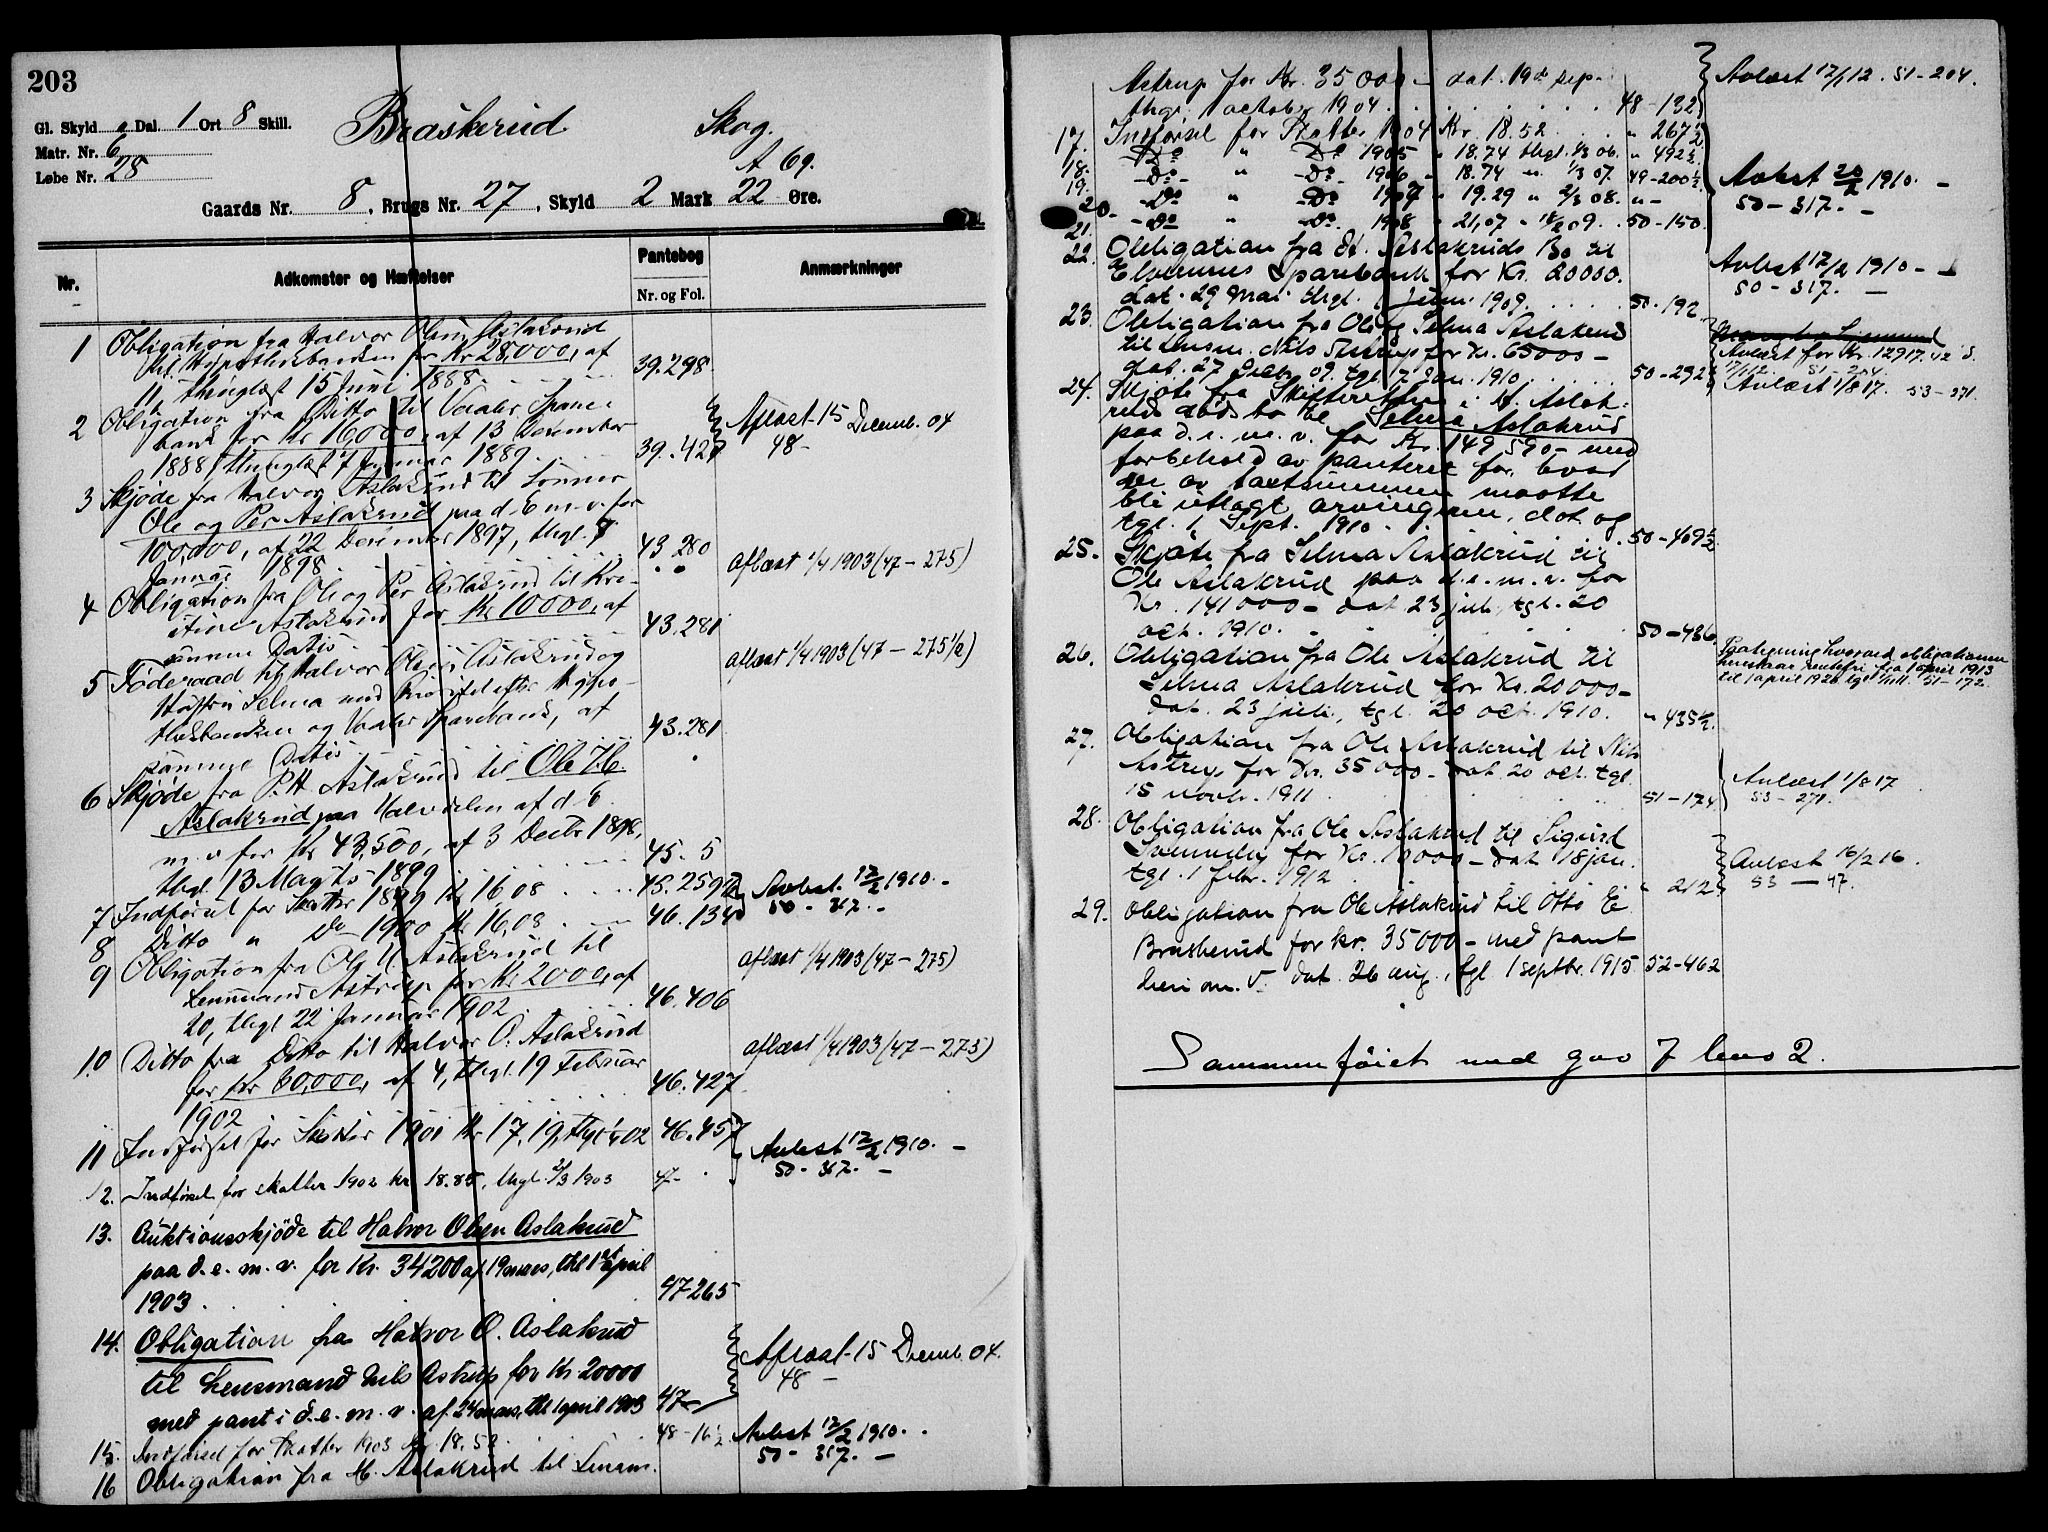 203
Gl. Skyld " Dal. 1 Ort 8 Skill.
Matr. Nr. 6
Løbe Nr. 28
Braskerud Skog.
A 69.
Gaards Nr. 8, Brugs Nr. 27, Skyld 2 Mark 22 Øre.
Nr. Adkomster og Hæftelser Pantebog Nr. og Fol. Anmærkninger
1 Obligation fra Halvor Olsen Aslakrud
til Hypothekbanken for Kr 28,000, af
11, thinglæst 15 Juni 1888 39.298
2 Obligation fra Ditto til Vaaler Spare-
bank for Kr 16,000, af 13 December
1888, thinglæst 7 Januar 1889 39.427 Aflæst 15 Decemb. 04
48-
3 Skjøde fra Halvor Aslakrud til Sønner
Ole og Per Aslakrud paa d. E m. v. for
100,000, af 22 December 1897, thgl. 7
Januar 1898 43.280
4 Obligation fra Ole og Per Aslakrud til Kri-
stine Aslakrud for Kr 10000, af
samme Datis 43.281 aflæst 1/4 1903 (47-275)
5 Føderaad til Halvor Olsen Aslakrud og
Hustru Selma med Prioritet efter Hypo-
thekbanken og Vaaler Sparebank, af
samme Datis 43.281 aflæst 1/4 1903 (47-275 1/2)
6 Skjøde fra P. H. Aslakrud til Ole H.
Aslakrud paa Halvdelen af d. E.
m. v for Kr 43,500, af 3 Decbr 1898,
thgl. 13 Marts 1899 45.5
7 Indførsel for Skatter 1899 Kr 16,08 45.259 1/2 Avlæst 12/2 1910. -
8 Ditto " Do 1900 Kr 16,08 46.134 50-317. -
9 Obligation fra Ole H. Aslakrud til
Lensmand Astrup for Kr 2000, af
20, thgl 22 Januar 1902 46.406 aflæst 1/4 1903 (47-275)
10 Ditto fra Ditto til Halvor O. Aslakrud
for Kr 60,000, af 4, thgl. 19 Februar
1902 46.427 aflæst 1/4 1903 (47-275)
11 Indførsel for Skatter 1901 Kr 17,19, thgl 02 46.457 Avlæst 12/2 1910. -
12. Indførsel for skatter 1902 kr 18.85, thgl. 2/3 1903 47- 50-317. -
13. Auktionsskjøde til Halvor Olsen Aslakrud
paa d. e. m. v. for Kr. 34200 af 19 mars, thl 1st april
1903 47265
14. Obligation fra Halvor O. Aslakrud
til Lensmand Nils Astrup for Kr 20000
med pant i d. e. m. v. af 24 mars, thl 1 april 1903 47- Aflæst 15 Decemb. 04.
48-
15. Indførsel for Skatter 1903 Kr. 18,52 48-16 1/2 Avlæst 12/2 1910.
50-317. -
16 Obligation fra H. Aslakrud til Lensm.
Astrup for Kr. 35000- dat. 19de sep.
thgl. 1 october 1904 48-132 Avlæst 12/12. 51-204.
17. Indførsel for Skatter 1904 Kr. 18.52 " 267 1/2
18. -Do- " -Do- 1905 " 18.74 thgl. 1/3 06. " 492 1/2
19. -Do- " -Do- 1906 " 18.74 " 1/3 07. 49-200 1/2 Avlæst 20/2 1910. -
20. -Do- " -Do- 1907 " 19.29 " 2/3 08. " - 50-317. -
21. -Do- " -Do- 1908 " 21,07 " 18/2 09. 50-150
22. Obligation fra H. Aslakruds Bo til
Elverums Sparebank for Kr. 20000.
dat. 29 mai thgl. 1 juni 1909 50-192 Avlæst 12/2 1910 -
50-317. -
23. Obligation fra Ole og Selma Aslakrud
til Lensm. Nils Astrup for Kr. 65000-
dat. 27 decbr. 09. tgl. 7 Jan. 1910. 50-292 Avlæst for Kr. 12917.42
17/12. 51-204.
Avlæst 1/8 17. 53-271.
24. Skjøte fra Skifteretten i H. Aslak-
ruds dødsbo til Selma Aslakrud
paa d. e. m. v. for Kr. 149 590- med
forbehold av panteret for hvad
der av kjøtsummen maatte
bli utlagt arvingerne, dat. og
tgl. 1 Sept. 1910 50-409 1/2
25. Skjøte fra Selma Aslakrud til
Ole Aslakrud paa d. e. m. v. for
Kr. 141000- dat. 23 juli, tgl. 20
oct. 1910. 50-436
26. Obligation fra Ole Aslakrud til
Selma Aslakrud for Kr. 20000-
dat. 23 juli, tgl. 20 oct. 1910. " 435 1/2. Paategning hvorved obligationen
henstaar rentefri fra 1 april 1913
til 1 april 1926 tgl 51-172
27. Obligation fra Ole Aslakrud til Nils
Astrup for Kr. 35000- dat. 20 oct. tgl.
15 novbr. 1911 51-174 Avlæst 1/8 17
53-271.
28. Obligation fra Ole Aslakrud til Sigurd
Svenneby for Kr. 10000- dat. 18 jan.
tgl. 1 febr. 1912 " 212 Avlæst 16/2 16.
53-47.
29. Obligation fra Ole Aslakrud til Otto E.
Braskerud for kr. 35000- med pant
heri m. v. dat. 26 aug., tgl 1 septbr. 1915 52-462
Sammenføiet med gno 7 bno 2.